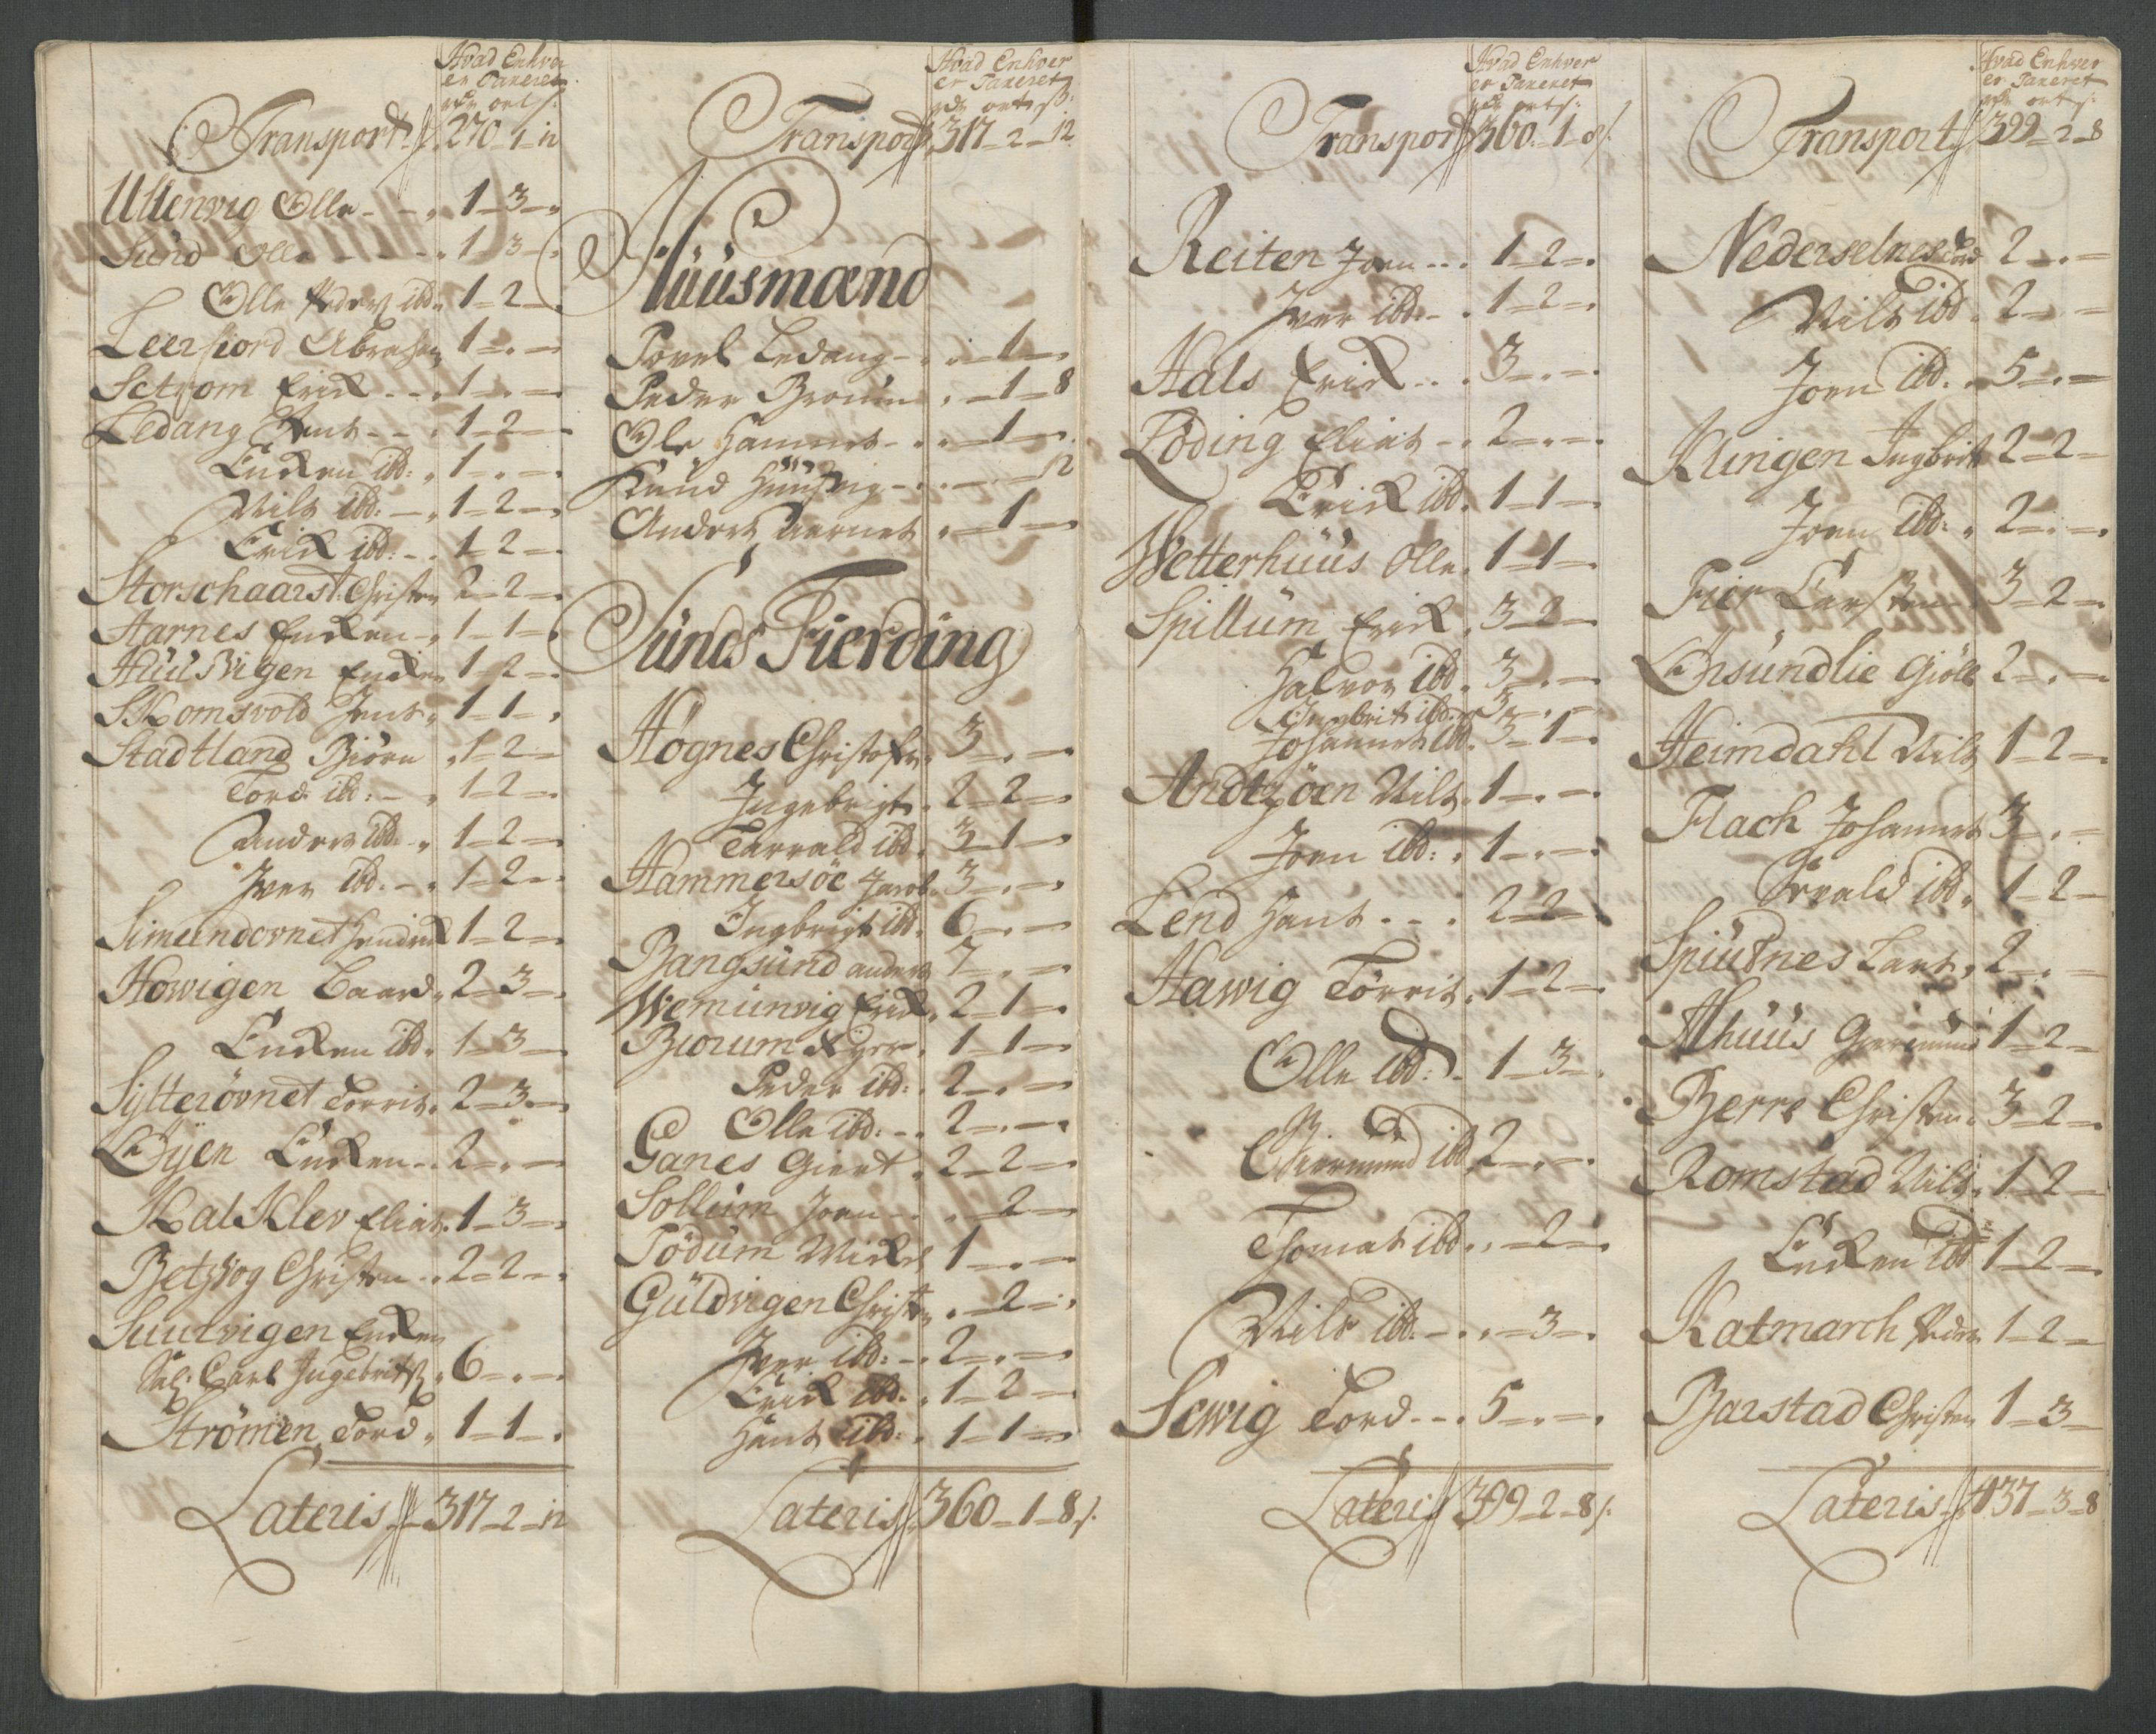 Hvad Enhver
er Taxeret
rdr ort s:
Transport 270 1 12
Ullenvig Olle 1 3
Sund Olle 1 3
Olle Peders ibd 1 2
Leerfiord Abraham 1
Setrom Erick 1
Ledang Jens 1 2
Encken ibd: 1
Nils ibd: 1 2
Erick ibd: 1 2
Storschaarst: Christen 2 2
Aarnes Encken 1 1
Huusvigen Encken 1 2
Skomsvold Jens 1 1
Stadtland Biörn 1 2
Tord ibd: 1 2
Anders ibd: 1 2
Iver ibd: 1 2
Simendovnet Hendrick 1 2
Howigen Baard 2 3
Encken ibd: 1 3
Sÿtterövnet Torris 2 3
Öÿen Encken 2
Kalklev Elias 1 3
Betzkog Christen 2 2
Suulvigen Encken
Sal: Carl Ingebrits 6
Strömen Tord 1 1
Lateris 317 2 12
Hvad Enhver
er Taxeret
rdr ort s:
Transport 317 2 12
Huusmænd
Povel Ledang 1
Peder Broum 1 8
Ole Hammer 1
Knud Huusvig 12
Anders Aarnes 1
Sunds Fierding
Högnes Christofer 3
Ingebrigt 2 2
Tarrald ibd 3 1
Hammersöe Jacob 3
Ingbrigt ibd 6
Bangsund Anders 7
Wemundvig Erick 2 1
Biorum 1 1
Peder ibd: 2
Olle ibd: 2
Ganes Giert 2 2
Sollum Joen 2
Södum Mickel 1
Guldvigen Christen 2
Iver ibd: 2
Erick ibd: 1 2
Hans ibd: 1 1
Lateris 360 1 8
Hvad Enhver
er Taxeret
rdr ort s:
Transport 360 1 8
Reiten Joen 1 2
Iver ibd: 1 2
Hals Erick 3
Löding Elias 2
Erick ibd 1 1
Wetterhuus Olle 1 1
Spillum Erick 3 2
Halvor ibd 3
Ingbrit ibd 3
Johannes ibd 3 1
Andtzöen Nils 1
Joen ibd: 1
Lend Hans 2 2
Hawig Törris 1 2
Olle ibd: 1 3
Giermund ibd 2
Thomas ibd 2
Nils ibd: 3
Sewig Tord 5
Lateris 399 2 8
Hvad Enhver
er Taxeret
rdr ort s:
Transport 399 2 8
Nederselnes Tord 2
Nils ibd 2
Joen ibd: 5
Klingen Ingbrit 2 2
Joen ibd: 2
Fier Carsten 3 2
Öhsundlie Giöll 2
Heimdahl Nils 1 2
Flach Johannes 3
Torvald ibd 1 2
Spiutnes Lars 2
Alhuus Giermund 1 2
Berre Christen 3 2
Romstad Nils 1 2
Encken ibd 1 2
Katmarch Peder 1 2
Barstad Christen 1 3
Lateris 437 3 8